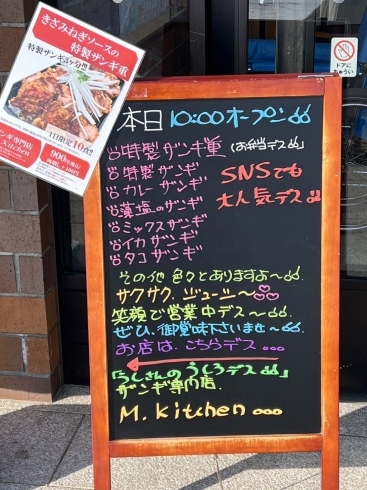 きざみねぎソースの
特製ザンギ重
特製ザンギ3ケ分想
1日限定10食!!
900円
ンギ専門店
Kitchen
ドアに
ちゅうい
本日 10:00オープン♪♪
特製ザンギ重(お弁当デス♪♪)
特製ザンギ
カレーザンギ
藻塩のザンギ
ミックスザンギ
イカザンギ
タコザンギ
SNSでも
大人気デス♪♪
その他色々とありますよ〜♪♪
サクサク.ジューシー〜♡♡
笑顔で営業中デス〜♪♪.
ぜひ、御賞味下さいませ〜♪♪.
お店は、こちらデス。。。
「うしさんのうしろデス♪♪」
ザンギ専門店.
M.kitchen 。。。